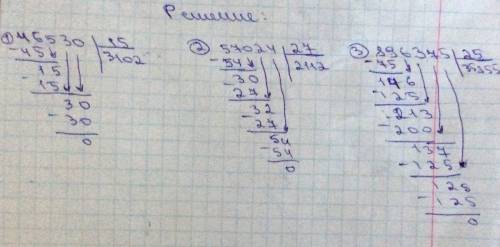 Решение:
① 46530 | 15
- 45 | 3102
15
- 15
30
- 30
0
② 57024 | 27
- 54 | 2112
30
- 27
32
- 27
54
- 54
0
③ 896375 | 25
- 75 | 35855
146
- 125
213
- 200
137
- 125
125
- 125
0